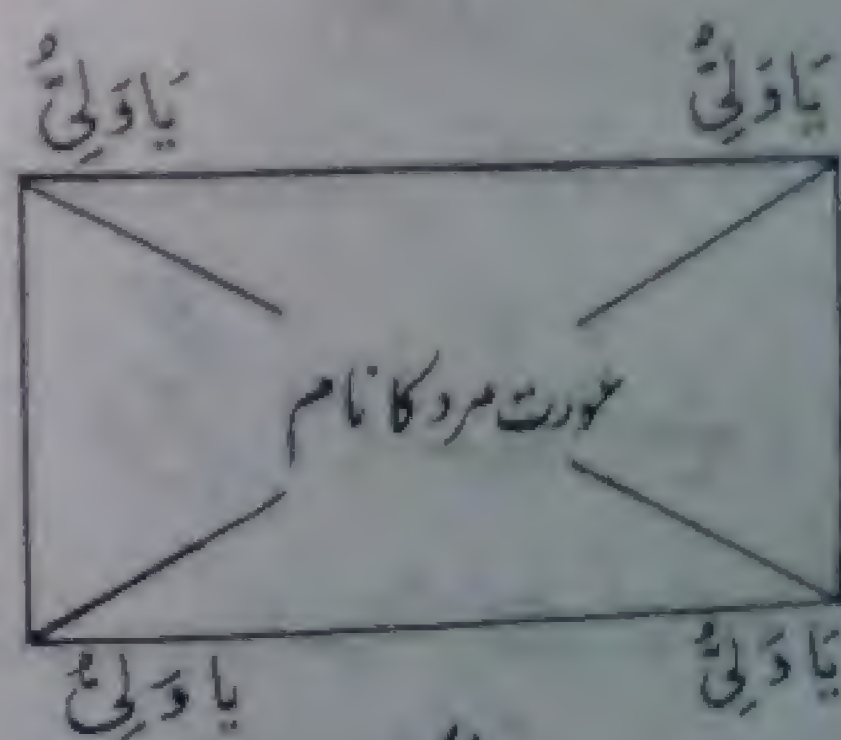 يَاوَلِيُّ يَاوَلِيُّ
عورت مرد کا نام
يَا وَلِيُّ يا وَلِيُّ